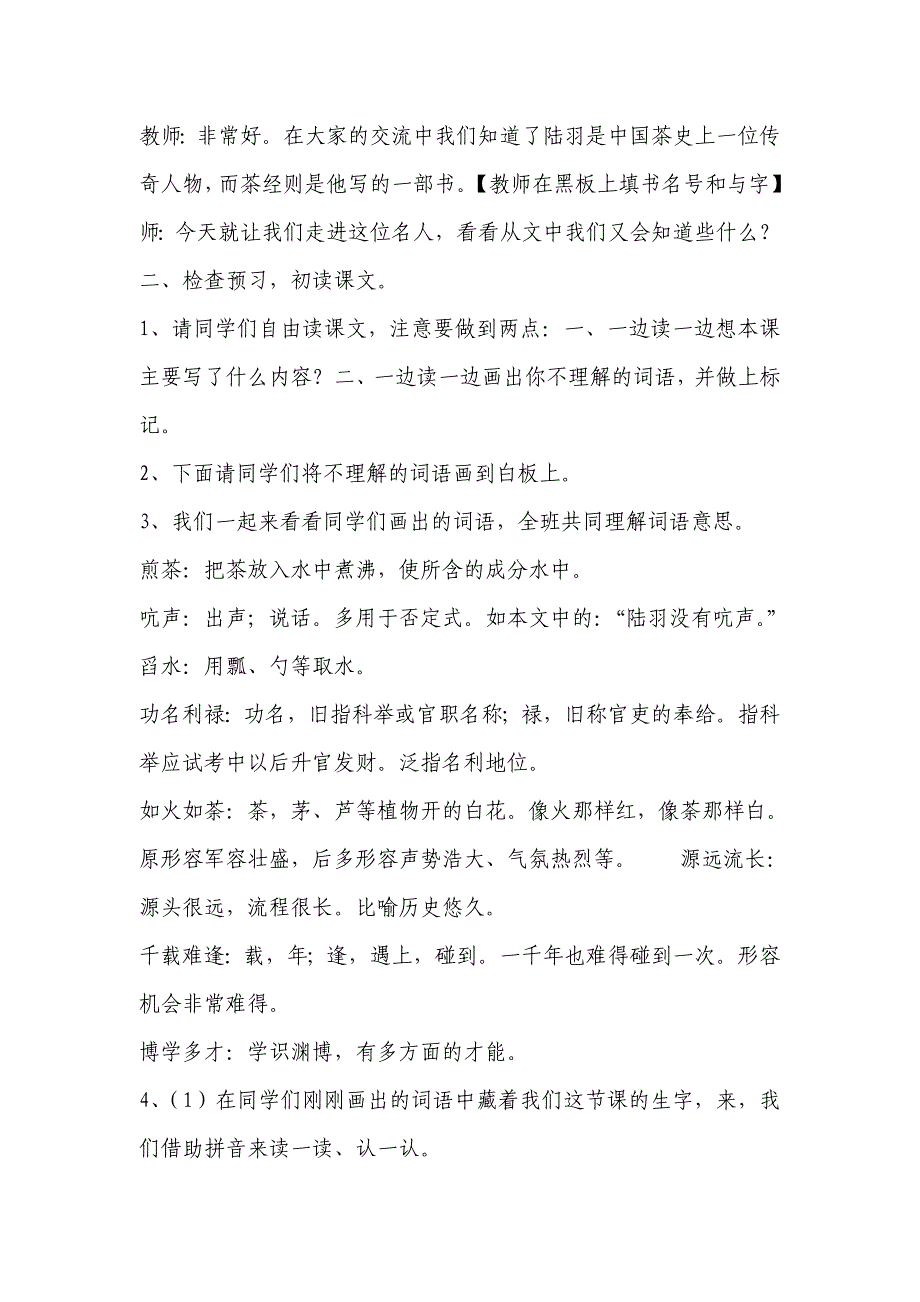 教师: 非常好。在大家的交流中我们知道了陆羽是中国茶史上一位传
奇人物,而茶经则是他写的一部书。【教师在黑板上填书名号和与字】
师: 今天就让我们走进这位名人，看看从文中我们又会知道些什么？
二、检查预习，初读课文。
1、请同学们自由读课文，注意要做到两点：一、一边读一边想本课
主要写了什么内容？二、一边读一边画出你不理解的词语,并做上标
记。
2、下面请同学们将不理解的词语画到白板上。
3、我们一起来看看同学们画出的词语，全班共同理解词语意思。
煎茶：把茶放入水中煮沸，使所含的成分水中。
吭声：出声；说话。多用于否定式。如本文中的：“陆羽没有吭声。”
舀水：用瓢、勺等取水。
功名利禄: 功名，旧指科举或官职名称; 禄，旧称官吏的奉给。指科
举应试考中以后升官发财。泛指名利地位。
如火如荼: 荼，茅、芦等植物开的白花。像火那样红，像荼那样白。
原形容军容壮盛，后多形容声势浩大、气氛热烈等。 源远流长：
源头很远，流程很长。比喻历史悠久。
千载难逢: 载，年; 逢，遇上，碰到。一千年也难得碰到一次。形容
机会非常难得。
博学多才：学识渊博，有多方面的才能。
4、（1）在同学们刚刚画出的词语中藏着我们这节课的生字，来，我
们借助拼音来读一读、认一认。